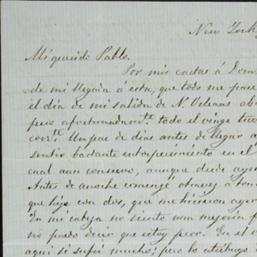 New York
Mi querido Pablo.
Por mis cartas á Dom
de mi llegada á esta, que todo me pare
el dia de mi salida de N. Orleans
pero afortunadamte. todo el
corte. Un par de dias antes de llegar
sentir bastante entorpecimiento en el
cual aun conservo, aunque desde ayer
Antes de anoche comenzé á
que hoy con dos, que me hicieron
En mi cabeza no siento mejoria
no puedo decir que estoy peor. En el
aqui si sufrí mucho; pero lo atribuyo